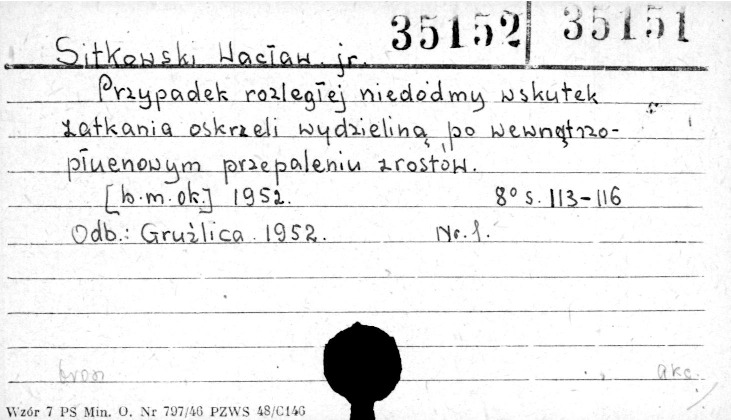 35152 35151
Sitkowski Wacław jr.
Przypadek rozległej niedodmy wskutek
zatkania oskrzeli wydzieliną po wewnątrzo-
płucnowym przepaleniu zrostów.
[b.m.ok.] 1952. 8° s. 113-116
Odb.: Gruźlica. 1952. Nr. 1.
brosz akc.
Wzór 7 PS Min. O. Nr 797/46 PZWS 48/C146